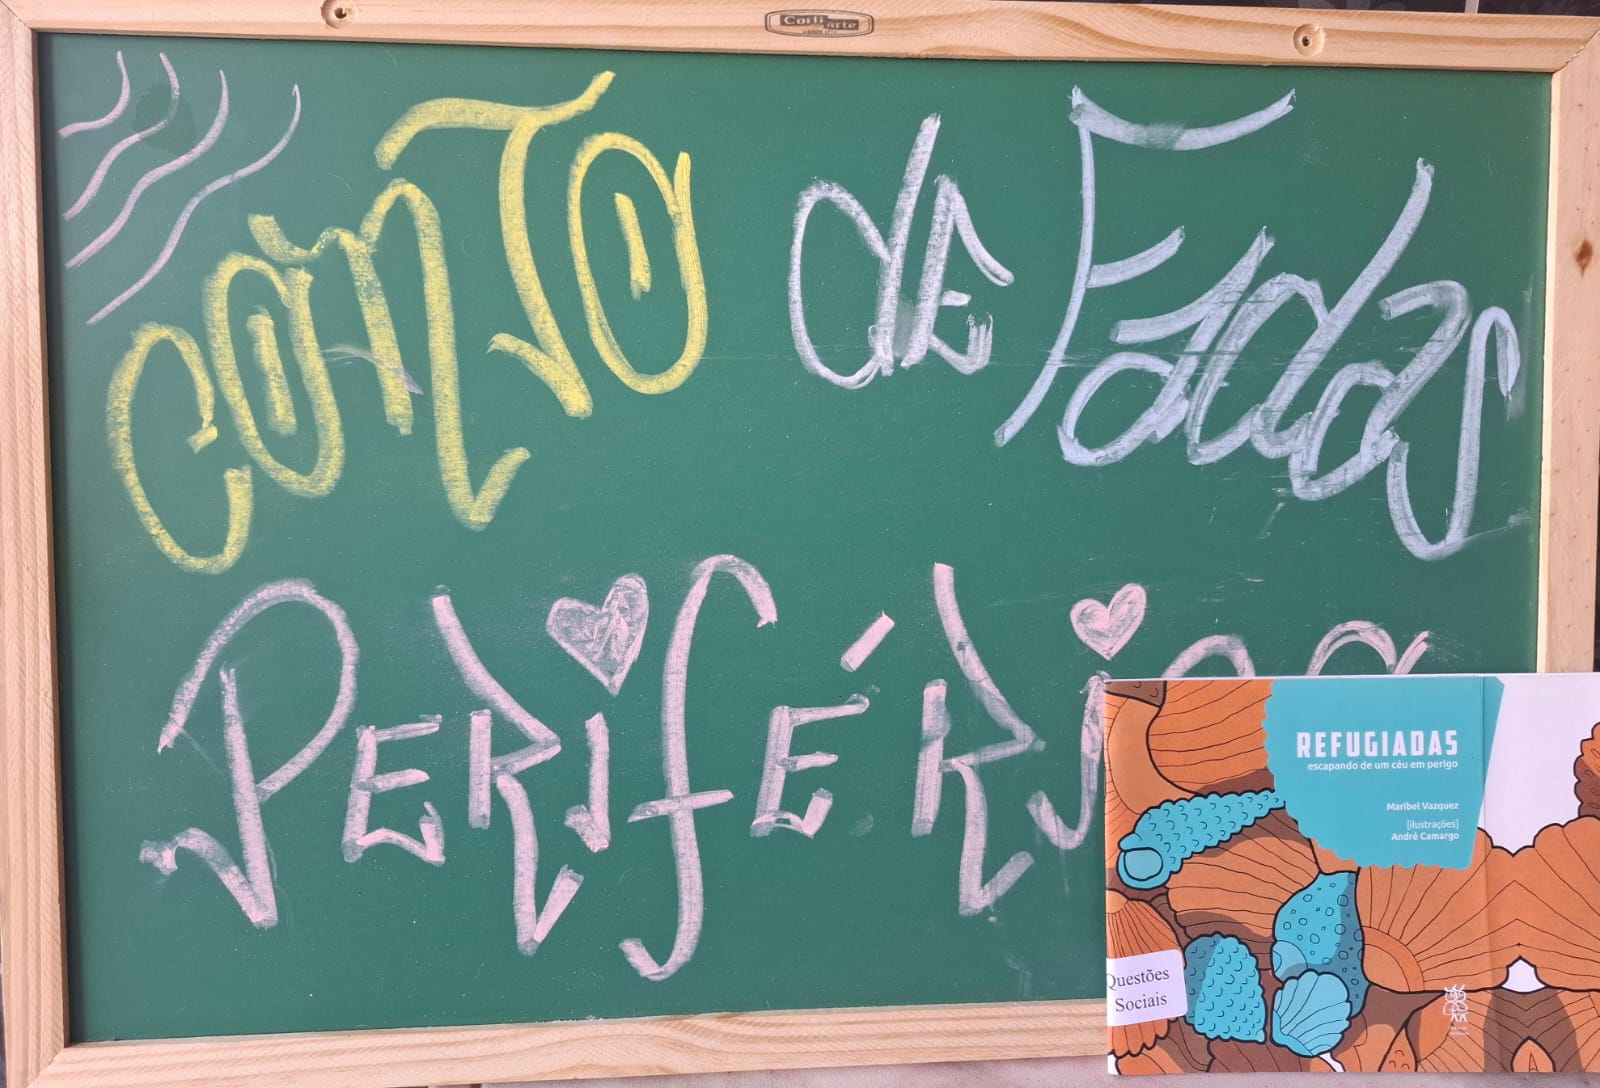 Conti arte
Conto de Fadas
Periférico
REFUGIADAS
escapando de um céu em perigo
Maribel Vazquez
[ilustrações]
André Camargo
Questões
Sociais